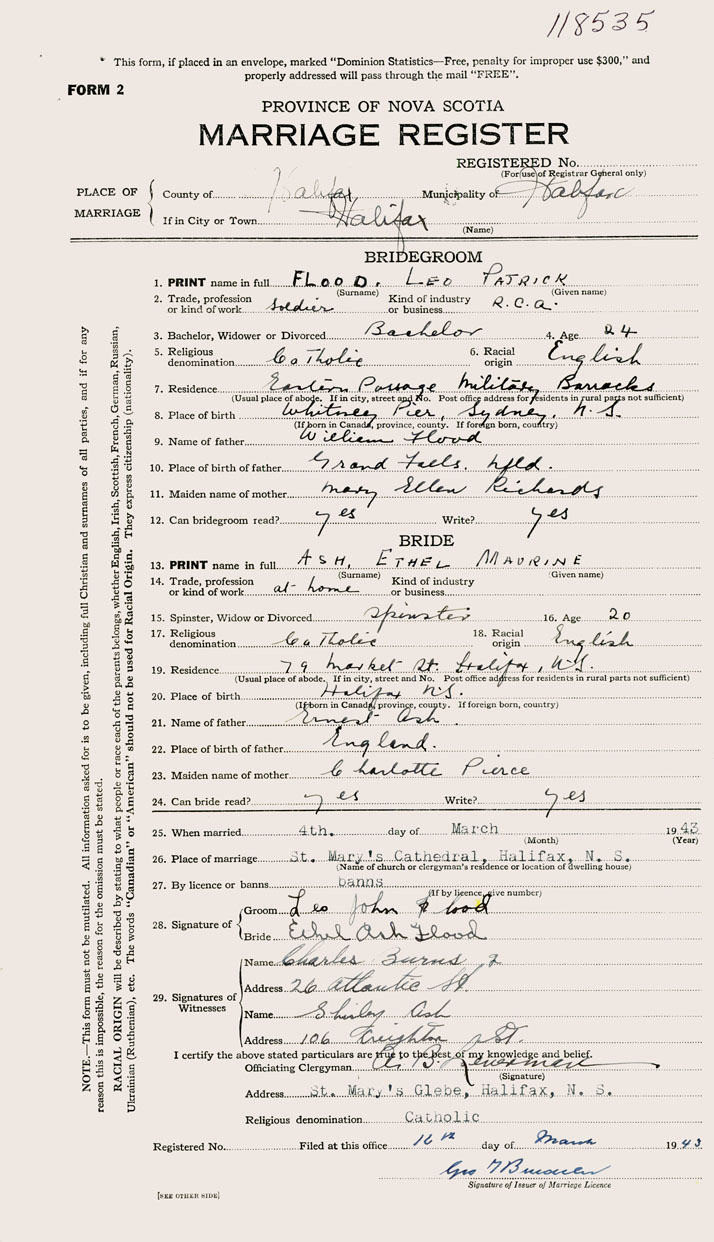 118535
* This form, if placed in an envelope, marked "Dominion Statistics—Free, penalty for improper use $300," and
properly addressed will pass through the mail "FREE".
FORM 2
PROVINCE OF NOVA SCOTIA
MARRIAGE REGISTER
REGISTERED No.
(For use of Registrar General only)
PLACE OF MARRIAGE
County of Halifax Municipality of Halifax
If in City or Town Halifax
(Name)
BRIDEGROOM
1. PRINT name in full FLOOD, LEO PATRICK
(Surname) (Given name)
2. Trade, profession or kind of work Soldier Kind of industry or business R.C.A.
3. Bachelor, Widower or Divorced Bachelor 4. Age 24
5. Religious denomination Catholic 6. Racial origin English
7. Residence Eastern Passage Military Barracks
(Usual place of abode. If in city, street and No. Post office address for residents in rural parts not sufficient)
8. Place of birth Whitney Pier, Sydney, N.S.
(If born in Canada, province, county. If foreign born, country)
9. Name of father William Flood
10. Place of birth of father Grand Falls, Nfld.
11. Maiden name of mother Mary Ellen Richards
12. Can bridegroom read? yes Write? yes
BRIDE
13. PRINT name in full ASH, ETHEL MAURINE
(Surname) (Given name)
14. Trade, profession or kind of work at home Kind of industry or business
15. Spinster, Widow or Divorced Spinster 16. Age 20
17. Religious denomination Catholic 18. Racial origin English
19. Residence 79 Market St. Halifax, N.S.
(Usual place of abode. If in city, street and No. Post office address for residents in rural parts not sufficient)
20. Place of birth Halifax N.S.
(If born in Canada, province, county. If foreign born, country)
21. Name of father Ernest Ash
22. Place of birth of father England.
23. Maiden name of mother Charlotte Pierce
24. Can bride read? yes Write? yes
25. When married 4th. day of March 1943
(Month) (Year)
26. Place of marriage St. Mary's Cathedral, Halifax, N. S.
(Name of church or clergyman's residence or location of dwelling house)
27. By licence or banns banns
(If by licence, give number)
28. Signature of
Groom Leo John Flood
Bride Ethel Ash Flood
29. Signatures of Witnesses
Name Charles Burns
Address 26 Atlantic St.
Name Shirley Ash
Address 106 Creighton St.
I certify the above stated particulars are true to the best of my knowledge and belief.
Officiating Clergyman
(Signature)
Address St. Mary's Glebe, Halifax, N. S.
Religious denomination Catholic
Registered No. Filed at this office 16th day of March 1943
Signature of Issuer of Marriage Licence
[SEE OTHER SIDE]
NOTE.—This form must not be mutilated. All information asked for is to be given, including full Christian and surnames of all parties, and if for any
reason this is impossible, the reason for the omission must be stated.
RACIAL ORIGIN will be described by stating to what people or race each of the parents belongs, whether English, Irish, Scottish, French, German, Russian,
Ukrainian (Ruthenian), etc. The words "Canadian" or "American" should not be used for Racial Origin. They express citizenship (nationality).